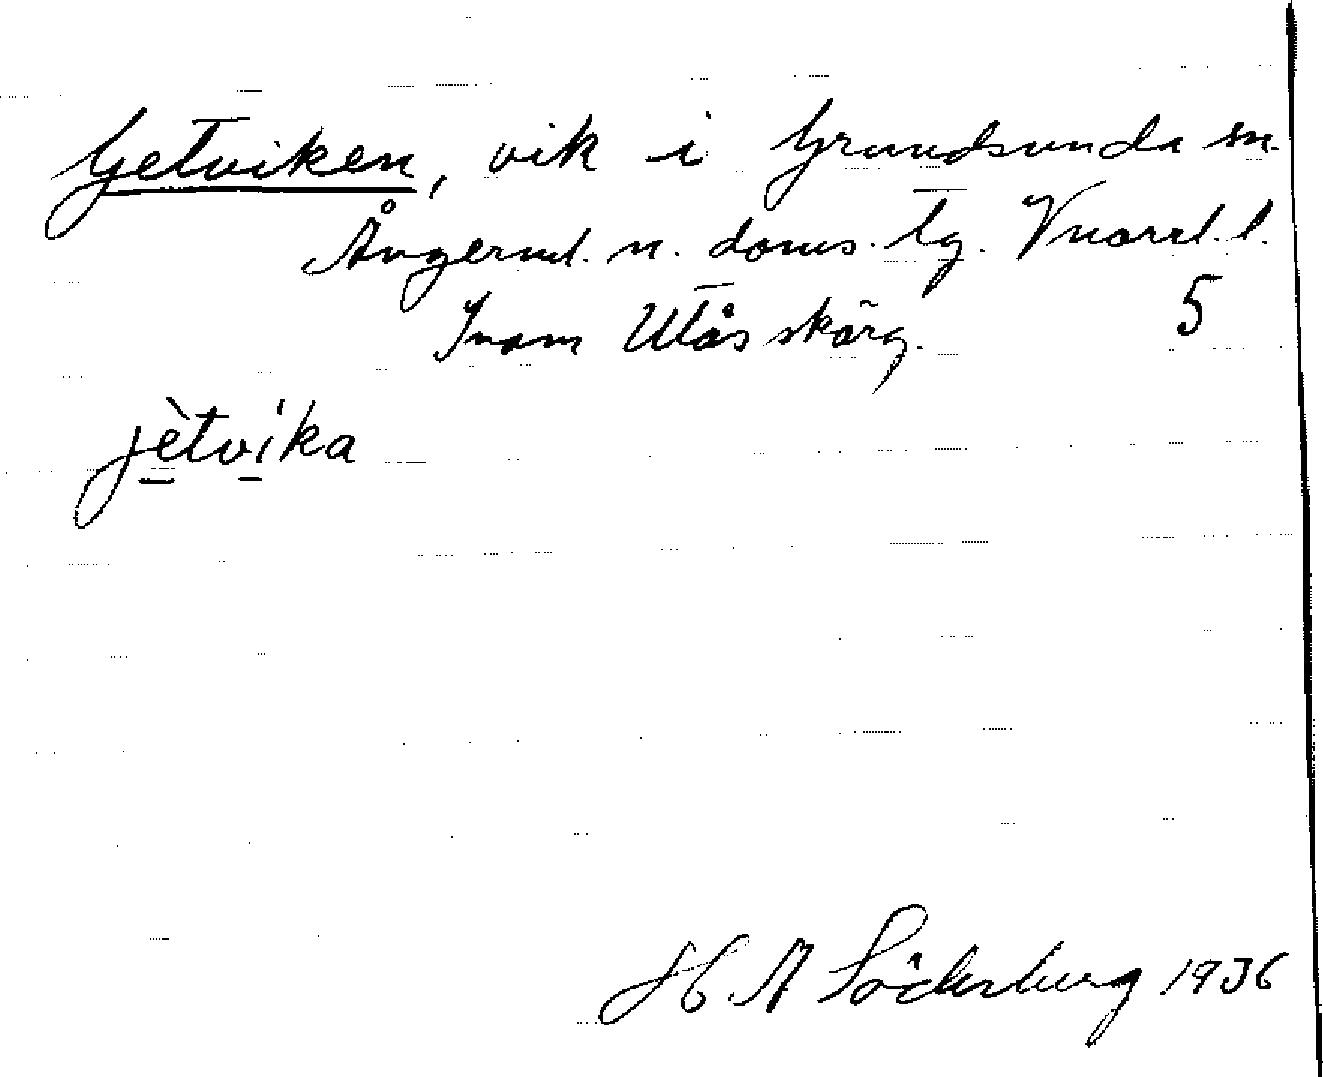 Getviken, vik i Grundsunda sn.
Ångerml. n. doms. tg. Vnorrl. l.
Inom Utås skärg. 5
jètvíka
H. A Söderberg 1936